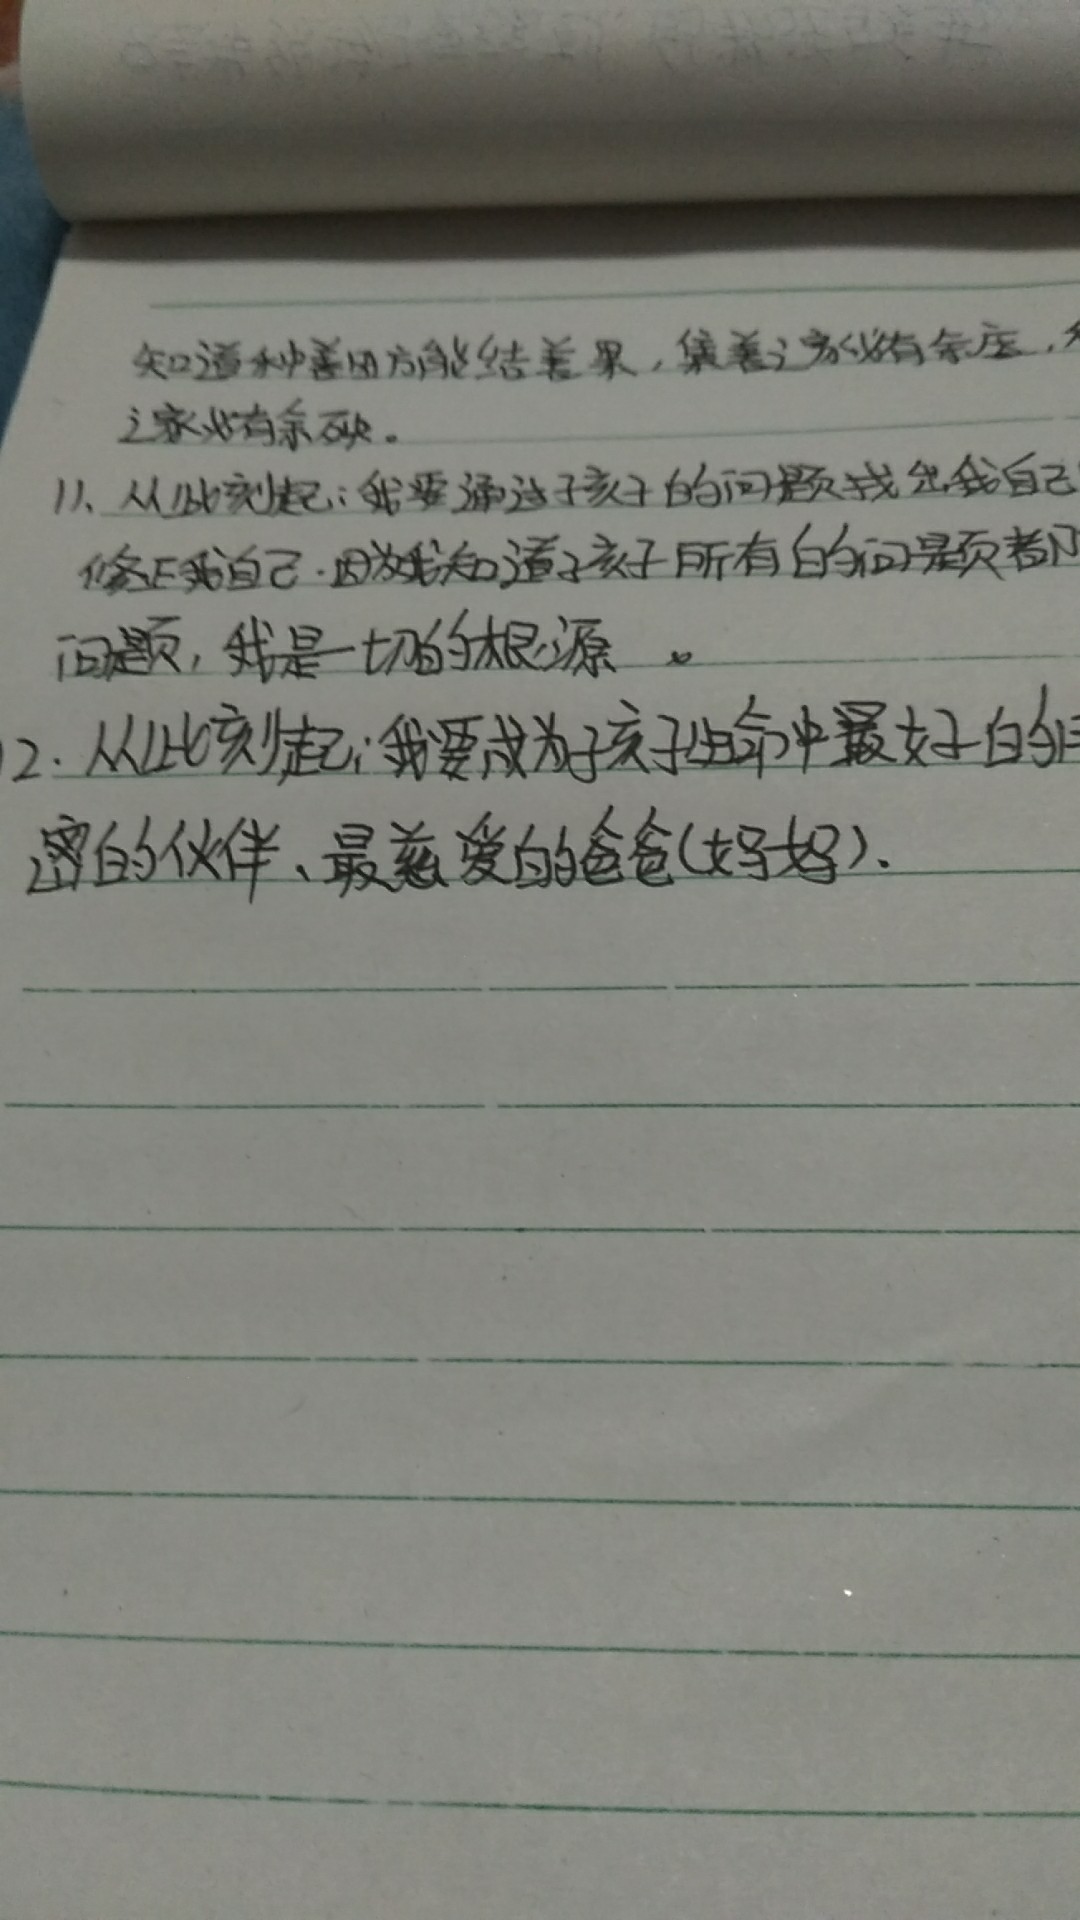 知道种善因方能结善果，集善之家必有余庆，
之家必有余殃。
11、从此刻起：我要通过孩子的问题找出我自己
修正我自己．因为我知道孩子所有的问题都
问题，我是一切的根源。
12．从此刻起：我要成为孩子生命中最好的
密的伙伴、最慈爱的爸爸（妈妈）．